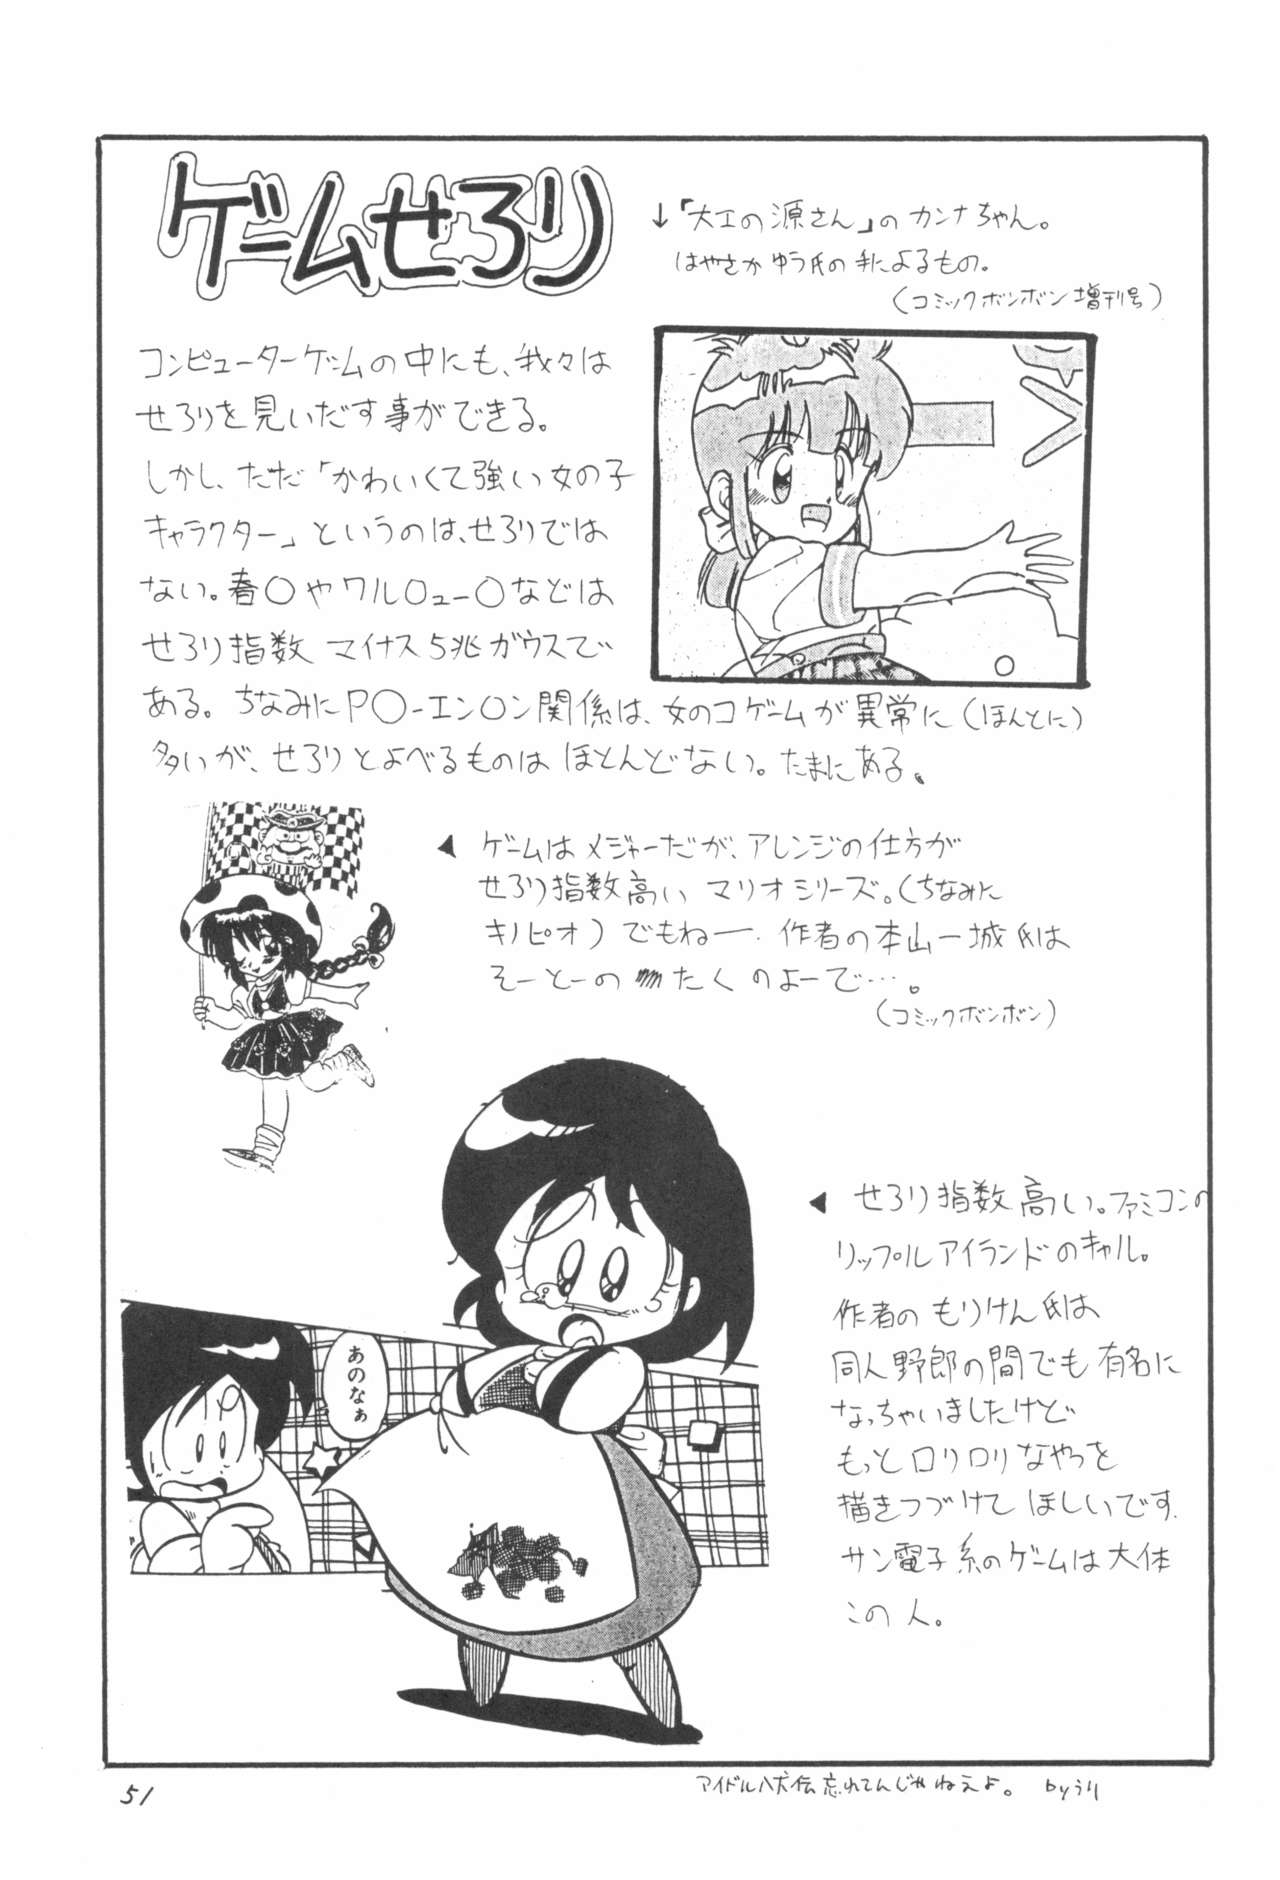 ゲームせろり
↓「大工の源さん」のカンナちゃん。
はやさかゆう氏の手によるもの。
(コミックボンボン増刊号)
コンピューターゲームの中にも、我々は
せろりを見いだす事ができる。
しかし、ただ「かわいくて強い女の子
キャラクター」というのは、せろりでは
ない。春〇やワル〇ュー〇などは
せろり指数 マイナス5兆ガウスで
ある。ちなみにP〇-エン〇ン関係は、女のコゲームが異常に(ほんとに)
多いが、せろりとよべるものは ほとんどない。たまにある。
◀ ゲームはメジャーだが、アレンジの仕方が
せろり指数高い マリオシリーズ。(ちなみに
キノピオ)でもねー. 作者の本山一城氏は
そーとーの たく のよーで…。
(コミックボンボン)
◀ せろり指数高い。ファミコンの
リップルアイランドのキャル。
作者の もりけん氏は
同人野郎の間でも有名に
なっちゃいましたけど
もっとロリロリなやつを
描きつづけて ほしいです.
サン電子系のゲームは大体
この人。
あのなぁ
51
アイドル八犬伝忘れてんじゃねえよ。 byうり